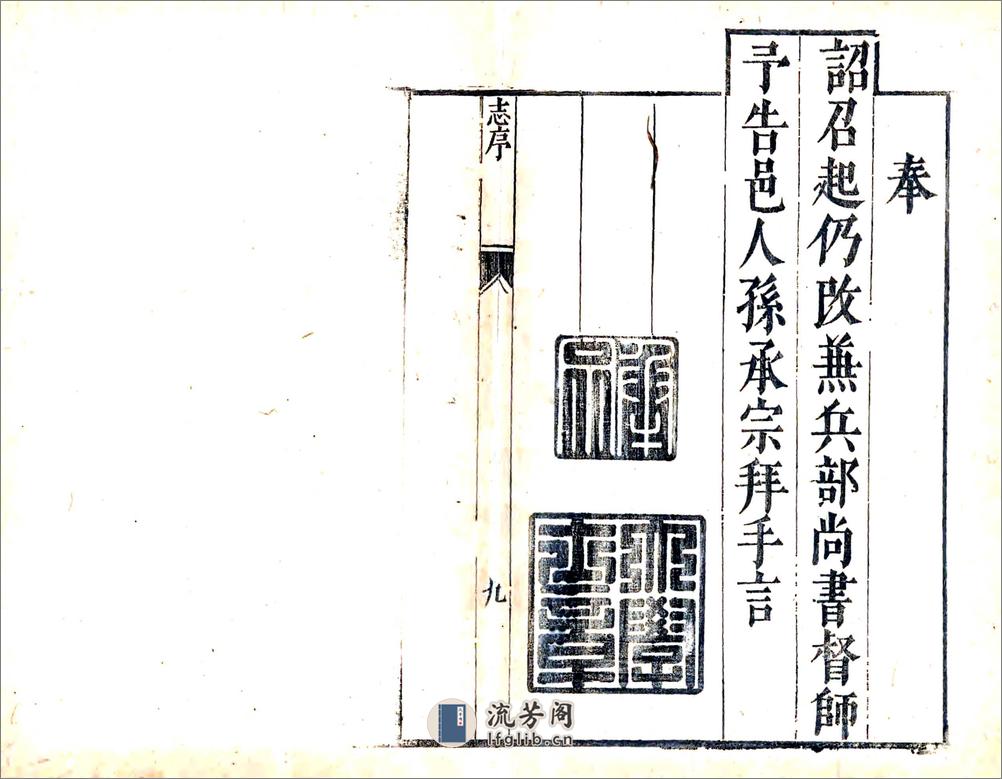 奉
詔召起仍改兼兵部尚書督師
予告邑人孫承宗拜手言
大學
士章
志序
九
流芳阁
lfglib.cn